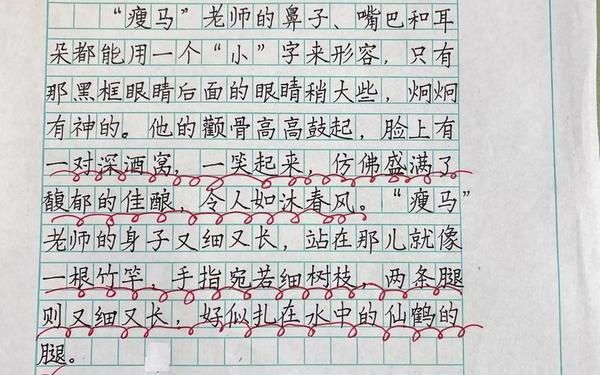 “瘦马”老师的鼻子、嘴巴和耳
朵都能用一个“小”字来形容，只有
那黑框眼睛后面的眼睛稍大些，炯炯
有神的。他的颧骨高高鼓起，脸上有
一对深酒窝，一笑起来，仿佛盛满了
馥郁的佳酿，令人如沐春风。“瘦马”
老师的身子又细又长，站在那儿就像
一根竹竿，手指宛若细树枝，两条腿
则又细又长，好似扎在水中的仙鹤的
腿。